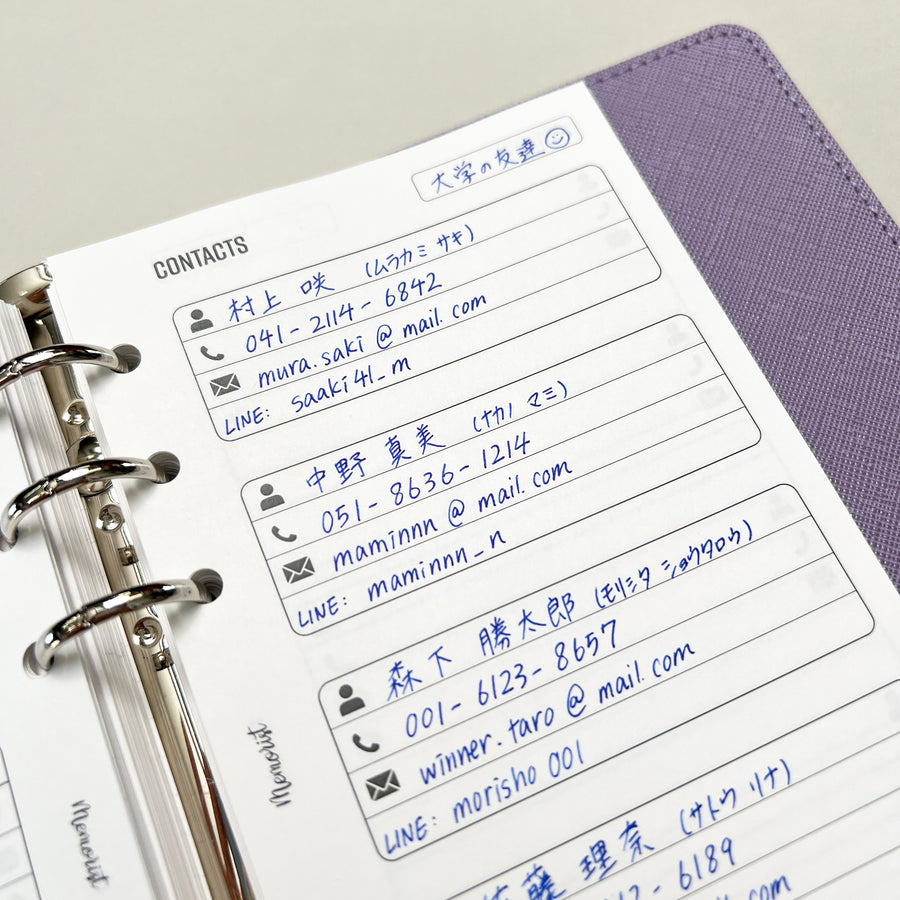 大学の友達
CONTACTS
村上 咲 (ムラカミ サキ)
041-2114-6842
mura.saki@mail.com
LINE: saaki41_m
中野 真美 (ナカノ マミ)
051-8636-1214
maminnn@mail.com
LINE: maminnn_n
森下 勝太郎 (モリシタ ショウタロウ)
001-6123-8657
winner.taro@mail.com
LINE: morisho001
佐藤 理奈 (サトウ リナ)
6189
Memorist
Memorist